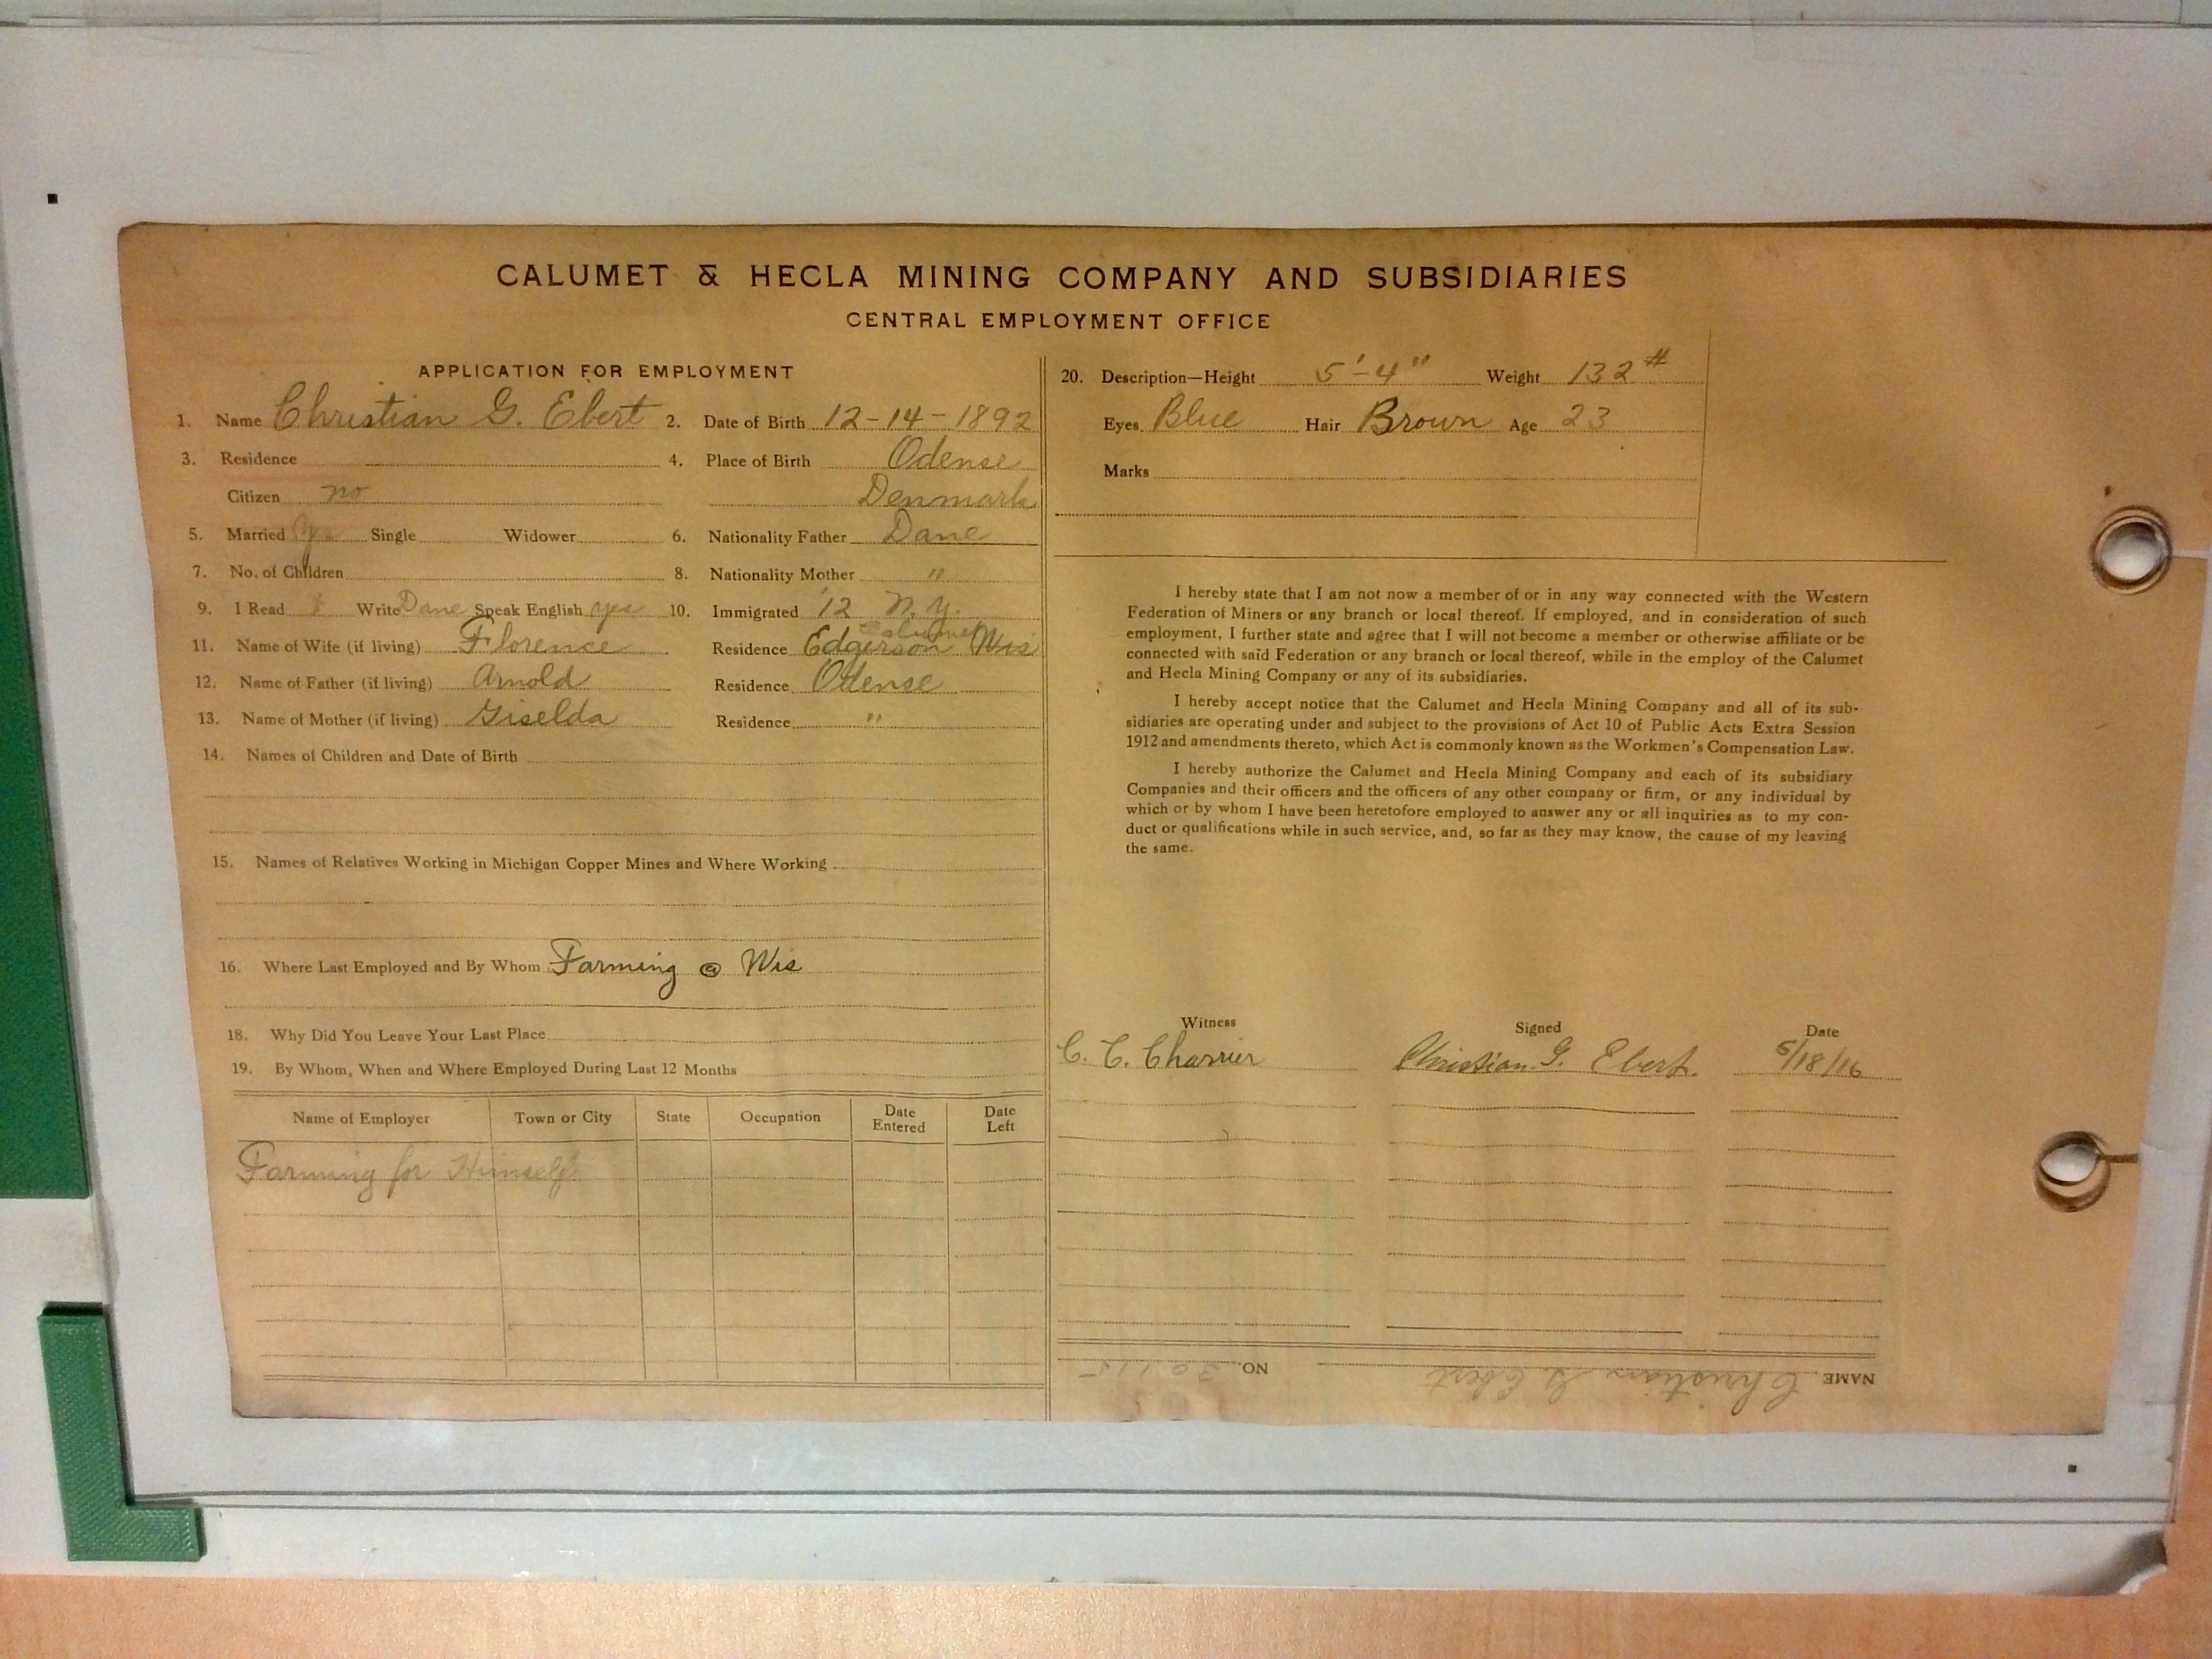 CALUMET & HECLA MINING COMPANY AND SUBSIDIARIES
CENTRAL EMPLOYMENT OFFICE
APPLICATION FOR EMPLOYMENT
1. Name Christian G. Ebert 2. Date of Birth 12-14-1892
3. Residence 4. Place of Birth Odense
Citizen no Denmark
5. Married Yes Single Widower 6. Nationality Father Dane
7. No. of Children 8. Nationality Mother "
9. I Read Write Dane Speak English yes 10. Immigrated '12 N.Y.
Calumet
11. Name of Wife (if living) Florence Residence Edgerson Wis
12. Name of Father (if living) Arnold Residence Odense
13. Name of Mother (if living) Giselda Residence "
14. Names of Children and Date of Birth
15. Names of Relatives Working in Michigan Copper Mines and Where Working
16. Where Last Employed and By Whom Farming @ Wis
18. Why Did You Leave Your Last Place
19. By Whom, When and Where Employed During Last 12 Months
Name of Employer Town or City State Occupation Date Entered Date Left
Farming for Himself
20. Description—Height 5'-4" Weight 132 #
Eyes Blue Hair Brown Age 23
Marks
I hereby state that I am not now a member of or in any way connected with the Western
Federation of Miners or any branch or local thereof. If employed, and in consideration of such
employment, I further state and agree that I will not become a member or otherwise affiliate or be
connected with said Federation or any branch or local thereof, while in the employ of the Calumet
and Hecla Mining Company or any of its subsidiaries.
I hereby accept notice that the Calumet and Hecla Mining Company and all of its sub-
sidiaries are operating under and subject to the provisions of Act 10 of Public Acts Extra Session
1912 and amendments thereto, which Act is commonly known as the Workmen's Compensation Law.
I hereby authorize the Calumet and Hecla Mining Company and each of its subsidiary
Companies and their officers and the officers of any other company or firm, or any individual by
which or by whom I have been heretofore employed to answer any or all inquiries as to my con-
duct or qualifications while in such service, and, so far as they may know, the cause of my leaving
the same.
Witness Signed Date
C. C. Charrier Christian G. Ebert. 5/18/16
NAME Christian G Ebert NO.